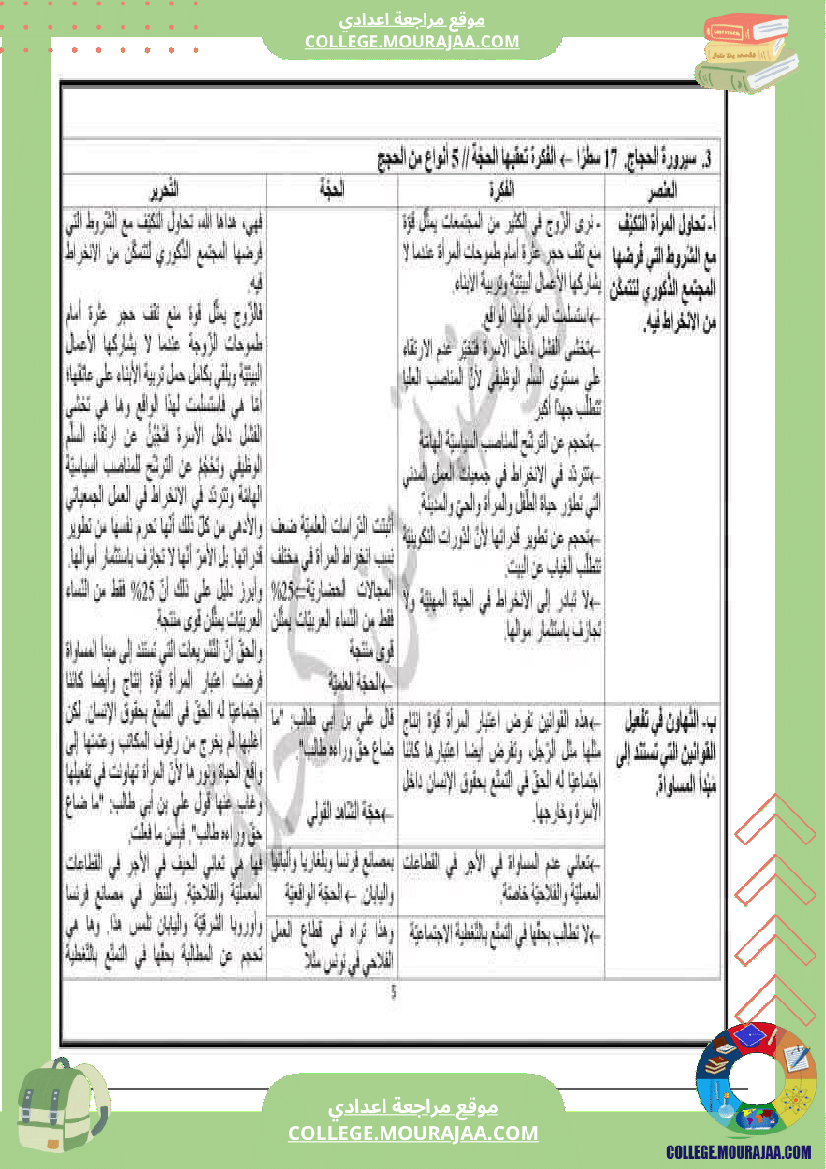 موقع مراجعة اعدادي
COLLEGE.MOURAJAA.COM
3. سيرورة الحجاج. 17 سطرًا ← الفكرة تعقبها الحجّة // 5 أنواع من الحجج
العنصر
الفكرة
الحجّة
التّحرير
أ- تحاول المرأة التكيّف
مع الشّروط التي فرضها
المجتمع الذّكوري لتتمكّن
من الانخراط فيه.
- نرى الزّوج في الكثير من المجتمعات يمثّل قوّة
منع تقف حجر عثرة أمام طموحات المرأة عندما لا
يشاركها الأعمال البيتيّة وتربية الأبناء.
←استسلمت المرة لهذا الواقع.
←تخشى الفشل داخل الأسرة فتخيّر عدم الارتقاء
على مستوى السلّم الوظيفي لأنّ المناصب العليا
تتطلّب جهدًا أكبر
←تحجم عن الترشّح للمناصب السياسيّة لهامّة
←تتردّد في الانخراط في جمعيات العمل المدني
التي تطوّر حياة الطّفل والمرأة والحيّ والمدينة.
←تحجم عن تطوير قدراتها لأنّ لدّورات التكوينيّة
تتطلّب الغياب عن البيت.
←لا تبادر إلى الانخراط في الحياة المهنيّة ولا
تجازف باستثمار أموالها.
أثبتت الدّراسات العلميّة ضعف
نسب انخراط المرأة في مختلف
المجالات الحضاريّة⇐25%
فقط من النّساء العربيّات يمثّلن
قوى منتجة
←الحجّة العلميّة
فهي، هداها الله، تحاول التكيّف مع الشّروط التي
فرضها المجتمع الذّكوري لتتمكّن من الانخراط
فيه.
فالزّوج يمثّل قوة منع تقف حجر عثرة أمام
طموحات الزّوجة عندما لا يشاركها الأعمال
البيتيّة ويلقي بكامل حمل تربية الأبناء على عاتقها؛
أمّا هي فاستسلمت لهذا الواقع وها هي تخشى
الفشل داخل الأسرة فتَجْبُنُ عن ارتقاء السلّم
الوظيفي وتحْجُمُ عن الترشّح للمناصب السياسيّة
الهامّة وتتردّد في الانخراط في العمل الجمعياتي
والأدهى من كلّ ذلك أنّها تحرم نفسها من تطوير
قدراتها. بل الأمرّ أنّها لا تجازف باستثمار أموالها.
وأبرز دليل على ذلك أنّ 25% فقط من النّساء
العربيّات يمثّلن قوى منتجة.
والحقّ أنّ التّشريعات التي تستند إلى مبدأ المساواة
فرضت اعتبار المرأة قوّة إنتاج وأيضا كائنا
اجتماعيّا له الحقّ في التمتّع بحقوق الإنسان. لكن
أغلبها لم يخرج من رفوف المكاتب وعتمتها إلى
واقع الحياة ونورها لأنّ المرأة تهاونت في تفعيلها
وغاب عنها قول علي بن أبي طالب: "ما ضاع
حقّ وراءه طالب". فبئس ما فعلت.
فها هي تعاني الحيف في الأجر في القطاعات
المعمليّة والفلاحيّة. ولننظر في مصانع فرنسا
وأوروبا الشرقيّة واليابان نلمس هذا. وها هي
تحجم عن المطالبة بحقّها في التمتّع بالتّغطية
ب- التّهاون في تفعيل
القوانين التي تستند إلى
مبدأ المساواة.
←هذه القوانين تفرض اعتبار المرأة قوّة إنتاج
مثلها مثل الرّجل، وتفرض أيضا اعتبارها كائنا
اجتماعيّا له الحقّ في التمتّع بحقوق الإنسان داخل
الأسرة وخارجها.
قال علي بن أبي طالب: "ما
ضاع حقّ وراءه طالب".
←حجّة الشّاهد القولي
←تعاني عدم المساواة في الأجر في القطاعات
المعمليّة والفلاحيّة خاصّة.
بمصانع فرنسا وبلغاريا وألبانيا
واليابان. ←الحجّة الواقعيّة
←لا تطالب بحقّها في التمتّع بالتّغطية الاجتماعيّة
وهذا نراه في قطاع العمل
الفلاحي في تونس مثلا
5
موقع مراجعة اعدادي
COLLEGE.MOURAJAA.COM
COLLEGE.MOURAJAA.COM